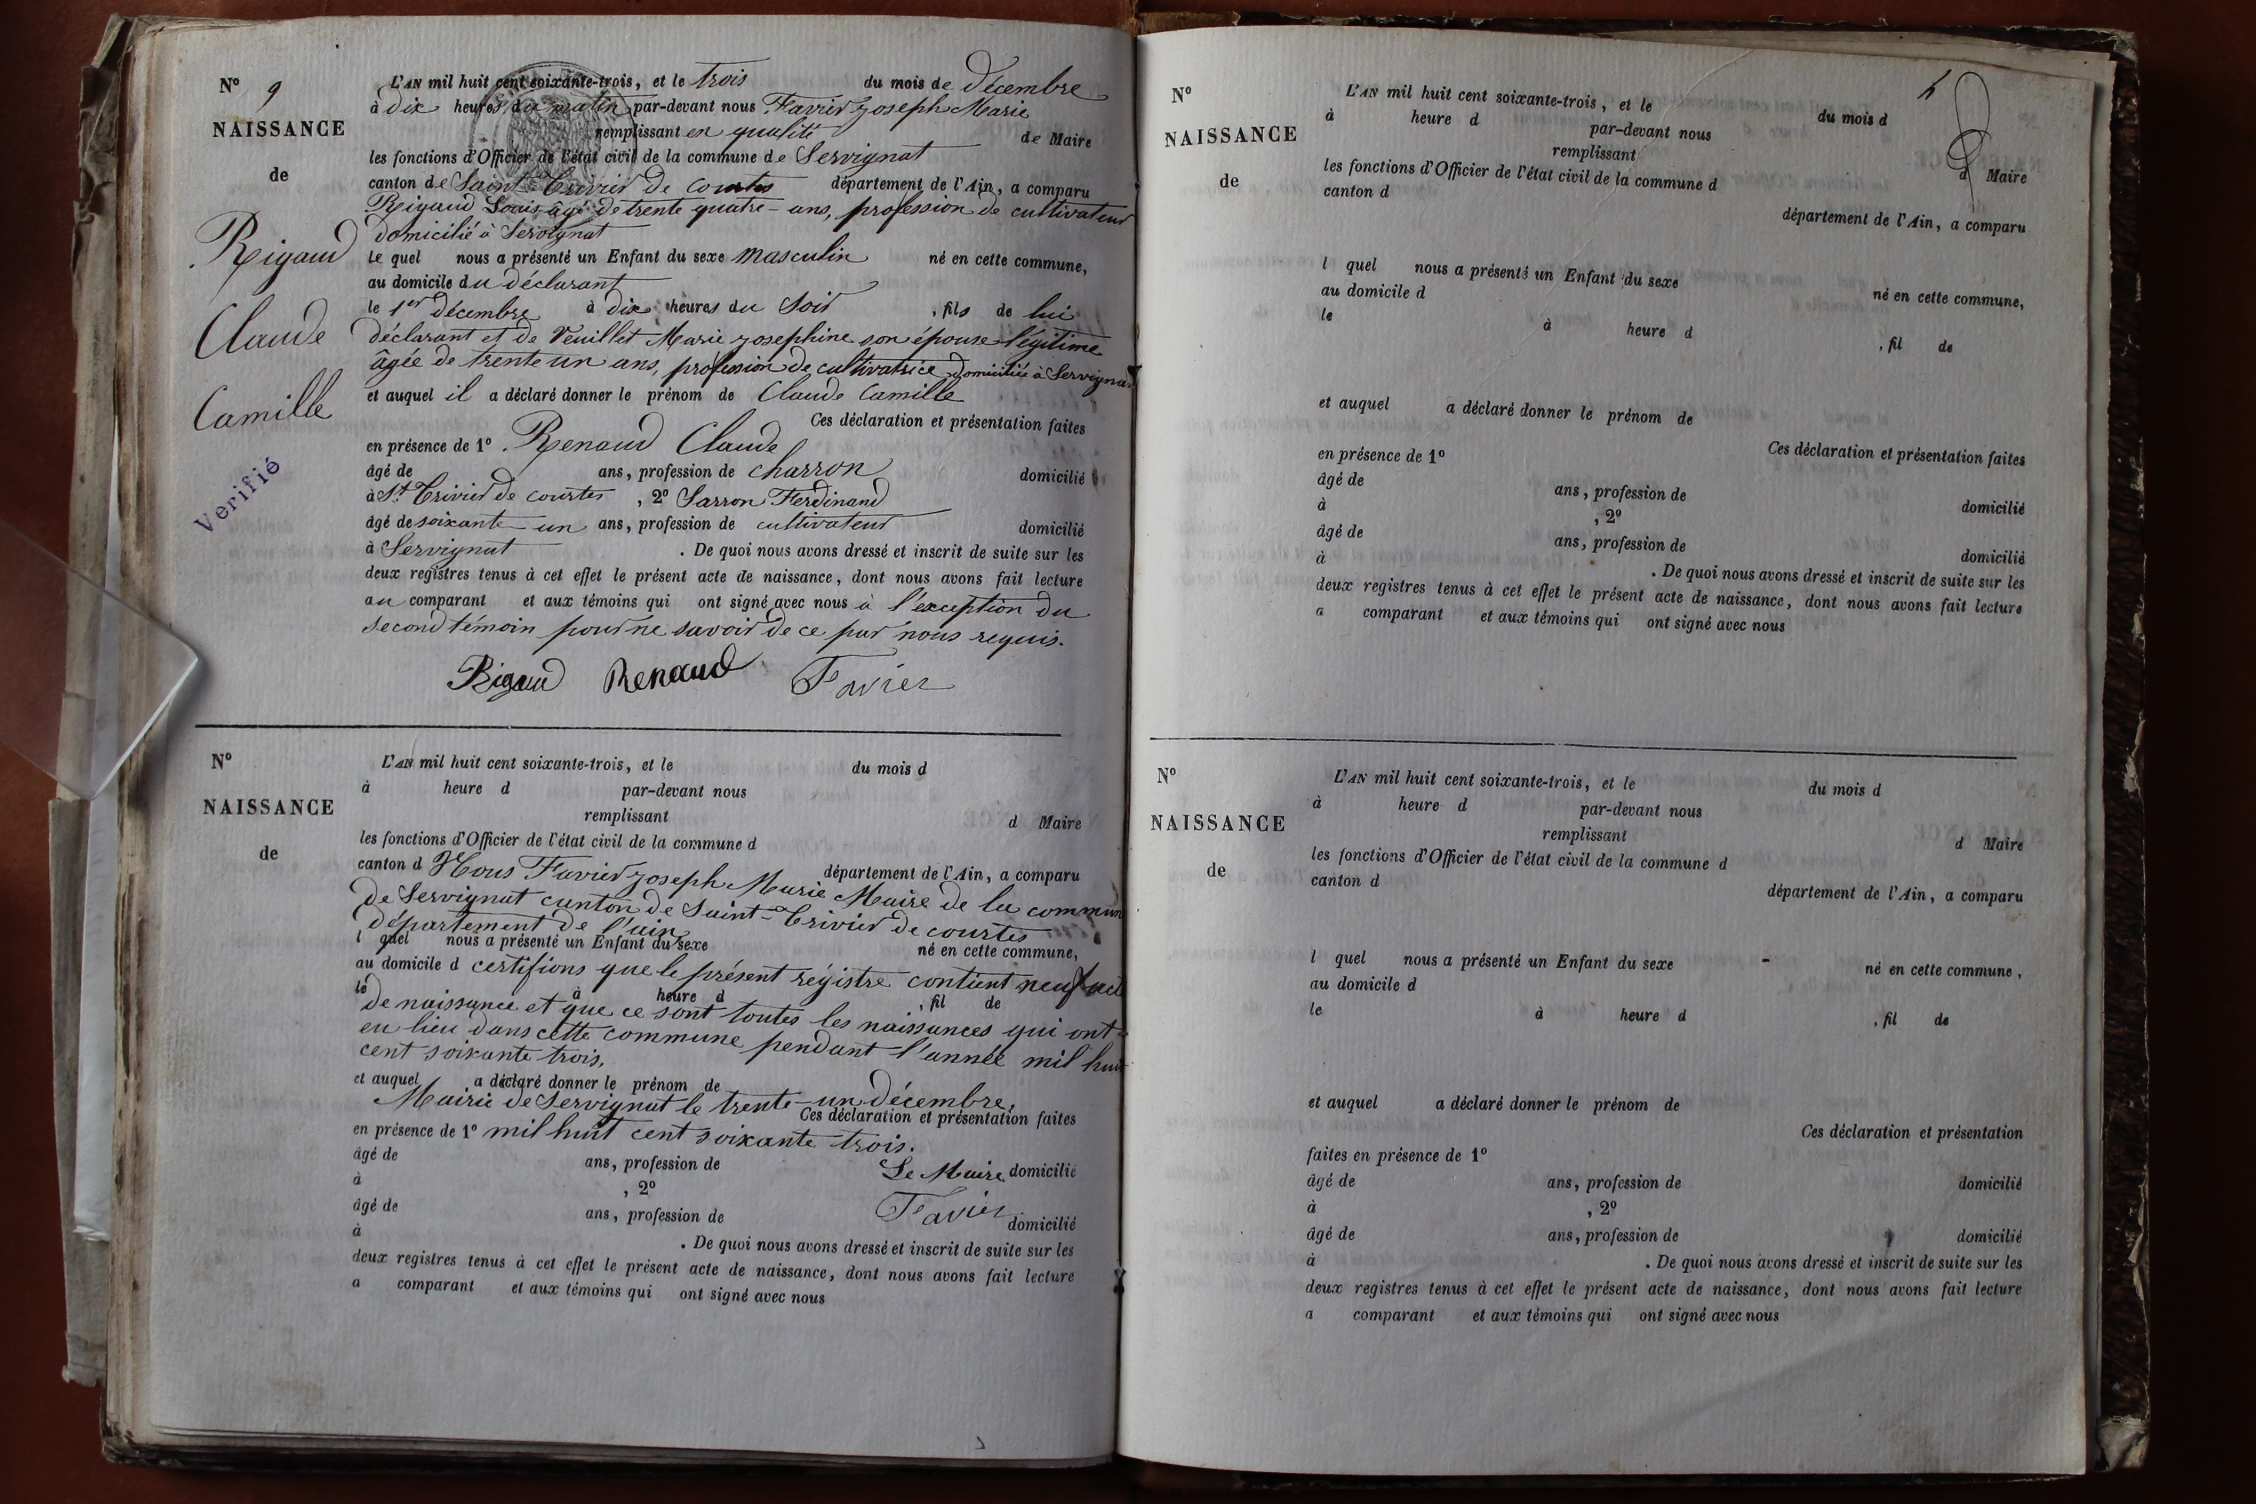 N° 9
NAISSANCE
de
Rigaud
Claude
Camille
Verifié
L'AN mil huit cent soixante-trois, et le trois du mois de Décembre
à dix heures du matin par-devant nous Favier Joseph Marie
remplissant en qualité de Maire
les fonctions d'Officier de l'état civil de la commune de Servignat
canton de Saint-Trivier de Courtes département de l'Ain, a comparu
Rigaud Louis âgé de trente quatre-ans, profession de cultivateur
domicilié à Servignat
le quel nous a présenté un Enfant du sexe masculin né en cette commune,
au domicile du déclarant
le 1er décembre à dix heures du Soir, fils de lui
déclarant et de Veuillet Marie Josephine son épouse légitime
âgée de trente un ans, profession de cultivatrice domiciliée à Servignat
et auquel il a déclaré donner le prénom de Claude Camille
Ces déclaration et présentation faites
en présence de 1° Renaud Claude
âgé de ans, profession de charron domicilié
à St. Trivier de courtes, 2° Sarron Ferdinand
âgé de soixante-un ans, profession de cultivateur domicilié
à Servignat. De quoi nous avons dressé et inscrit de suite sur les
deux registres tenus à cet effet le présent acte de naissance, dont nous avons fait lecture
au comparant et aux témoins qui ont signé avec nous à l'exception du
second témoin pour ne savoir de ce par nous requis.
Rigaud Renaud Favier
N°
NAISSANCE
de
L'AN mil huit cent soixante-trois, et le du mois d
à heure d par-devant nous
remplissant d Maire
les fonctions d'Officier de l'état civil de la commune d
canton d département de l'Ain, a comparu
Nous Favier Joseph Marie Maire de la commune
de Servignat canton de Saint-Trivier de courtes
département de l'ain
l quel nous a présenté un Enfant du sexe né en cette commune,
au domicile d certifions que le présent régistre contient neuf acte
le à heure d , fil de
de naissance et que ce sont toutes les naissances qui ont
eu lieu dans cette commune pendant l'année mil huit
cent soixante trois,
et auquel a déclaré donner le prénom de
Mairie de Servignat le trente-un décembre,
Ces déclaration et présentation faites
en présence de 1° mil huit cent soixante trois.
âgé de ans, profession de Le Maire domicilié
à , 2°
âgé de ans, profession de Favier domicilié
à . De quoi nous avons dressé et inscrit de suite sur les
deux registres tenus à cet effet le présent acte de naissance, dont nous avons fait lecture
a comparant et aux témoins qui ont signé avec nous
N°
NAISSANCE
de
L'AN mil huit cent soixante-trois, et le du mois d
à heure d par-devant nous
remplissant d Maire
les fonctions d'Officier de l'état civil de la commune d
canton d
département de l'Ain, a comparu
l quel nous a présenté un Enfant du sexe né en cette commune,
au domicile d
le à heure d , fil de
et auquel a déclaré donner le prénom de
Ces déclaration et présentation faites
en présence de 1°
âgé de ans, profession de domicilié
à , 2°
âgé de ans, profession de domicilié
à . De quoi nous avons dressé et inscrit de suite sur les
deux registres tenus à cet effet le présent acte de naissance, dont nous avons fait lecture
a comparant et aux témoins qui ont signé avec nous
N°
NAISSANCE
de
L'AN mil huit cent soixante-trois, et le du mois d
à heure d par-devant nous
remplissant d Maire
les fonctions d'Officier de l'état civil de la commune d
canton d
département de l'Ain, a comparu
l quel nous a présenté un Enfant du sexe né en cette commune,
au domicile d
le à heure d , fil de
et auquel a déclaré donner le prénom de
Ces déclaration et présentation
faites en présence de 1°
âgé de ans, profession de domicilié
à , 2°
âgé de ans, profession de domicilié
à . De quoi nous avons dressé et inscrit de suite sur les
deux registres tenus à cet effet le présent acte de naissance, dont nous avons fait lecture
a comparant et aux témoins qui ont signé avec nous